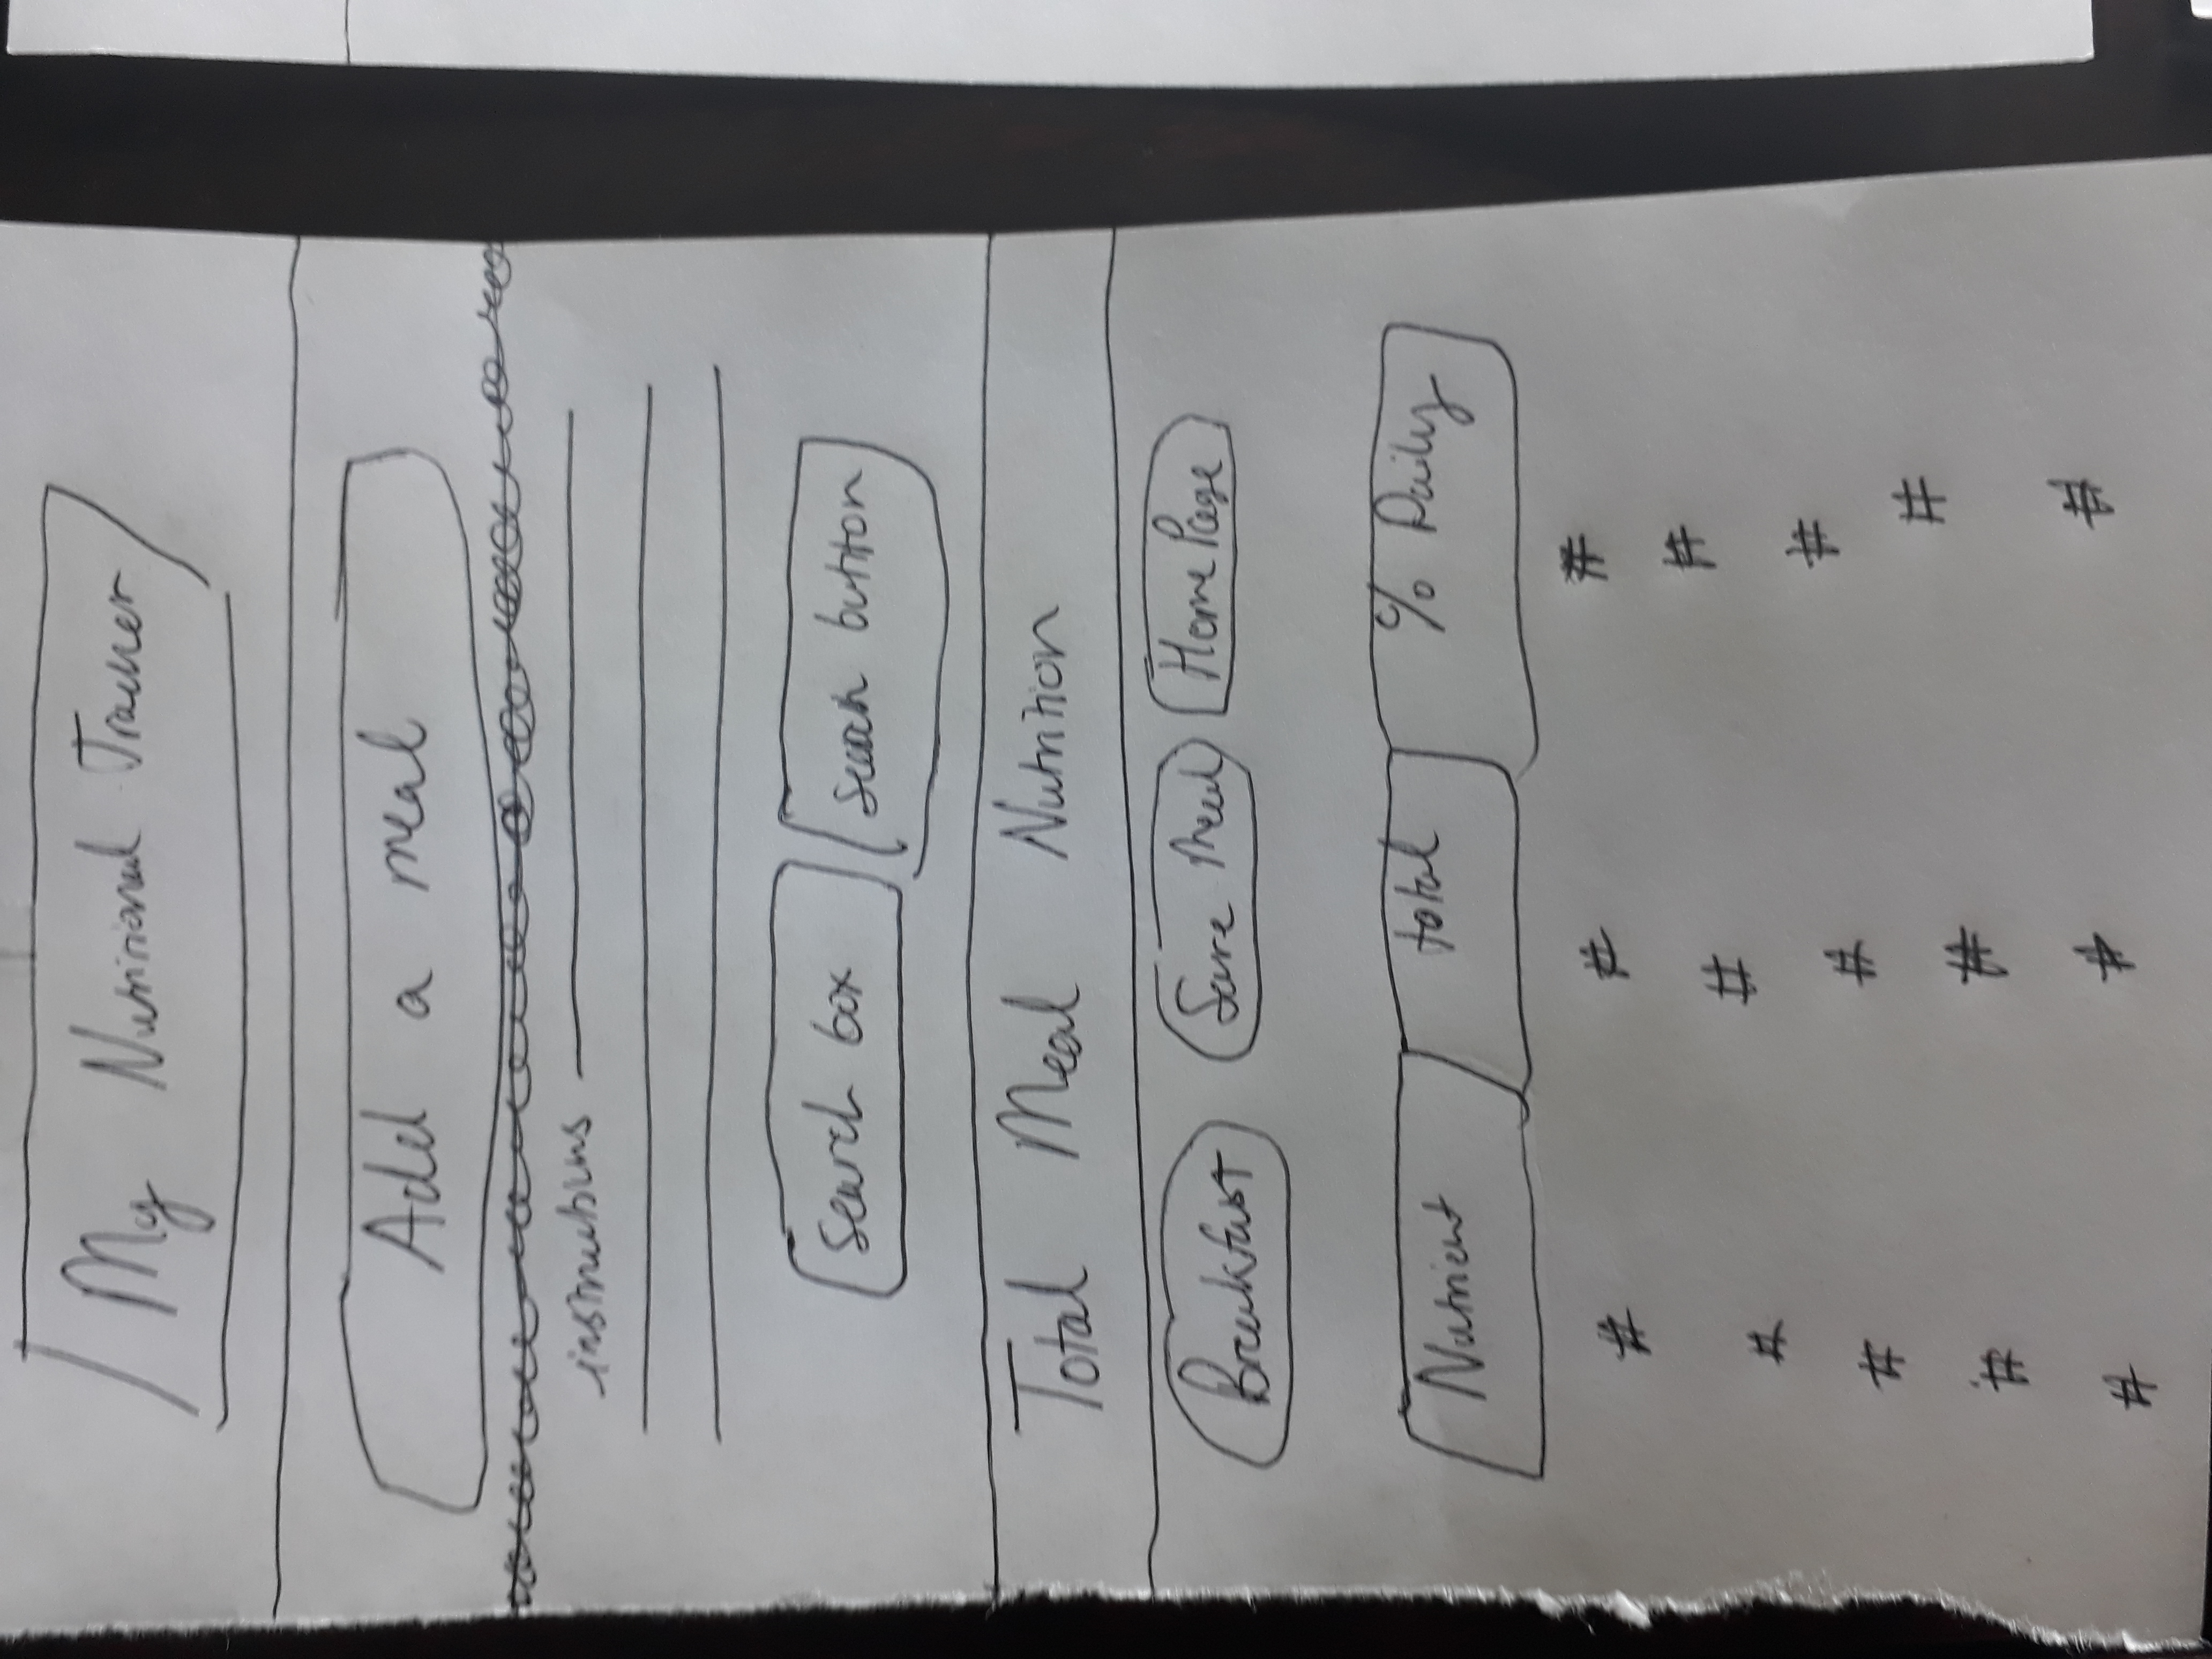 My Nutritional Tracker
Add a meal
instructions
Search box
Search button
Total Meal Nutrition
Breakfast Save Meal Home Page
Nutrient total % Daily
# # #
# # #
# # #
# # #
# # #